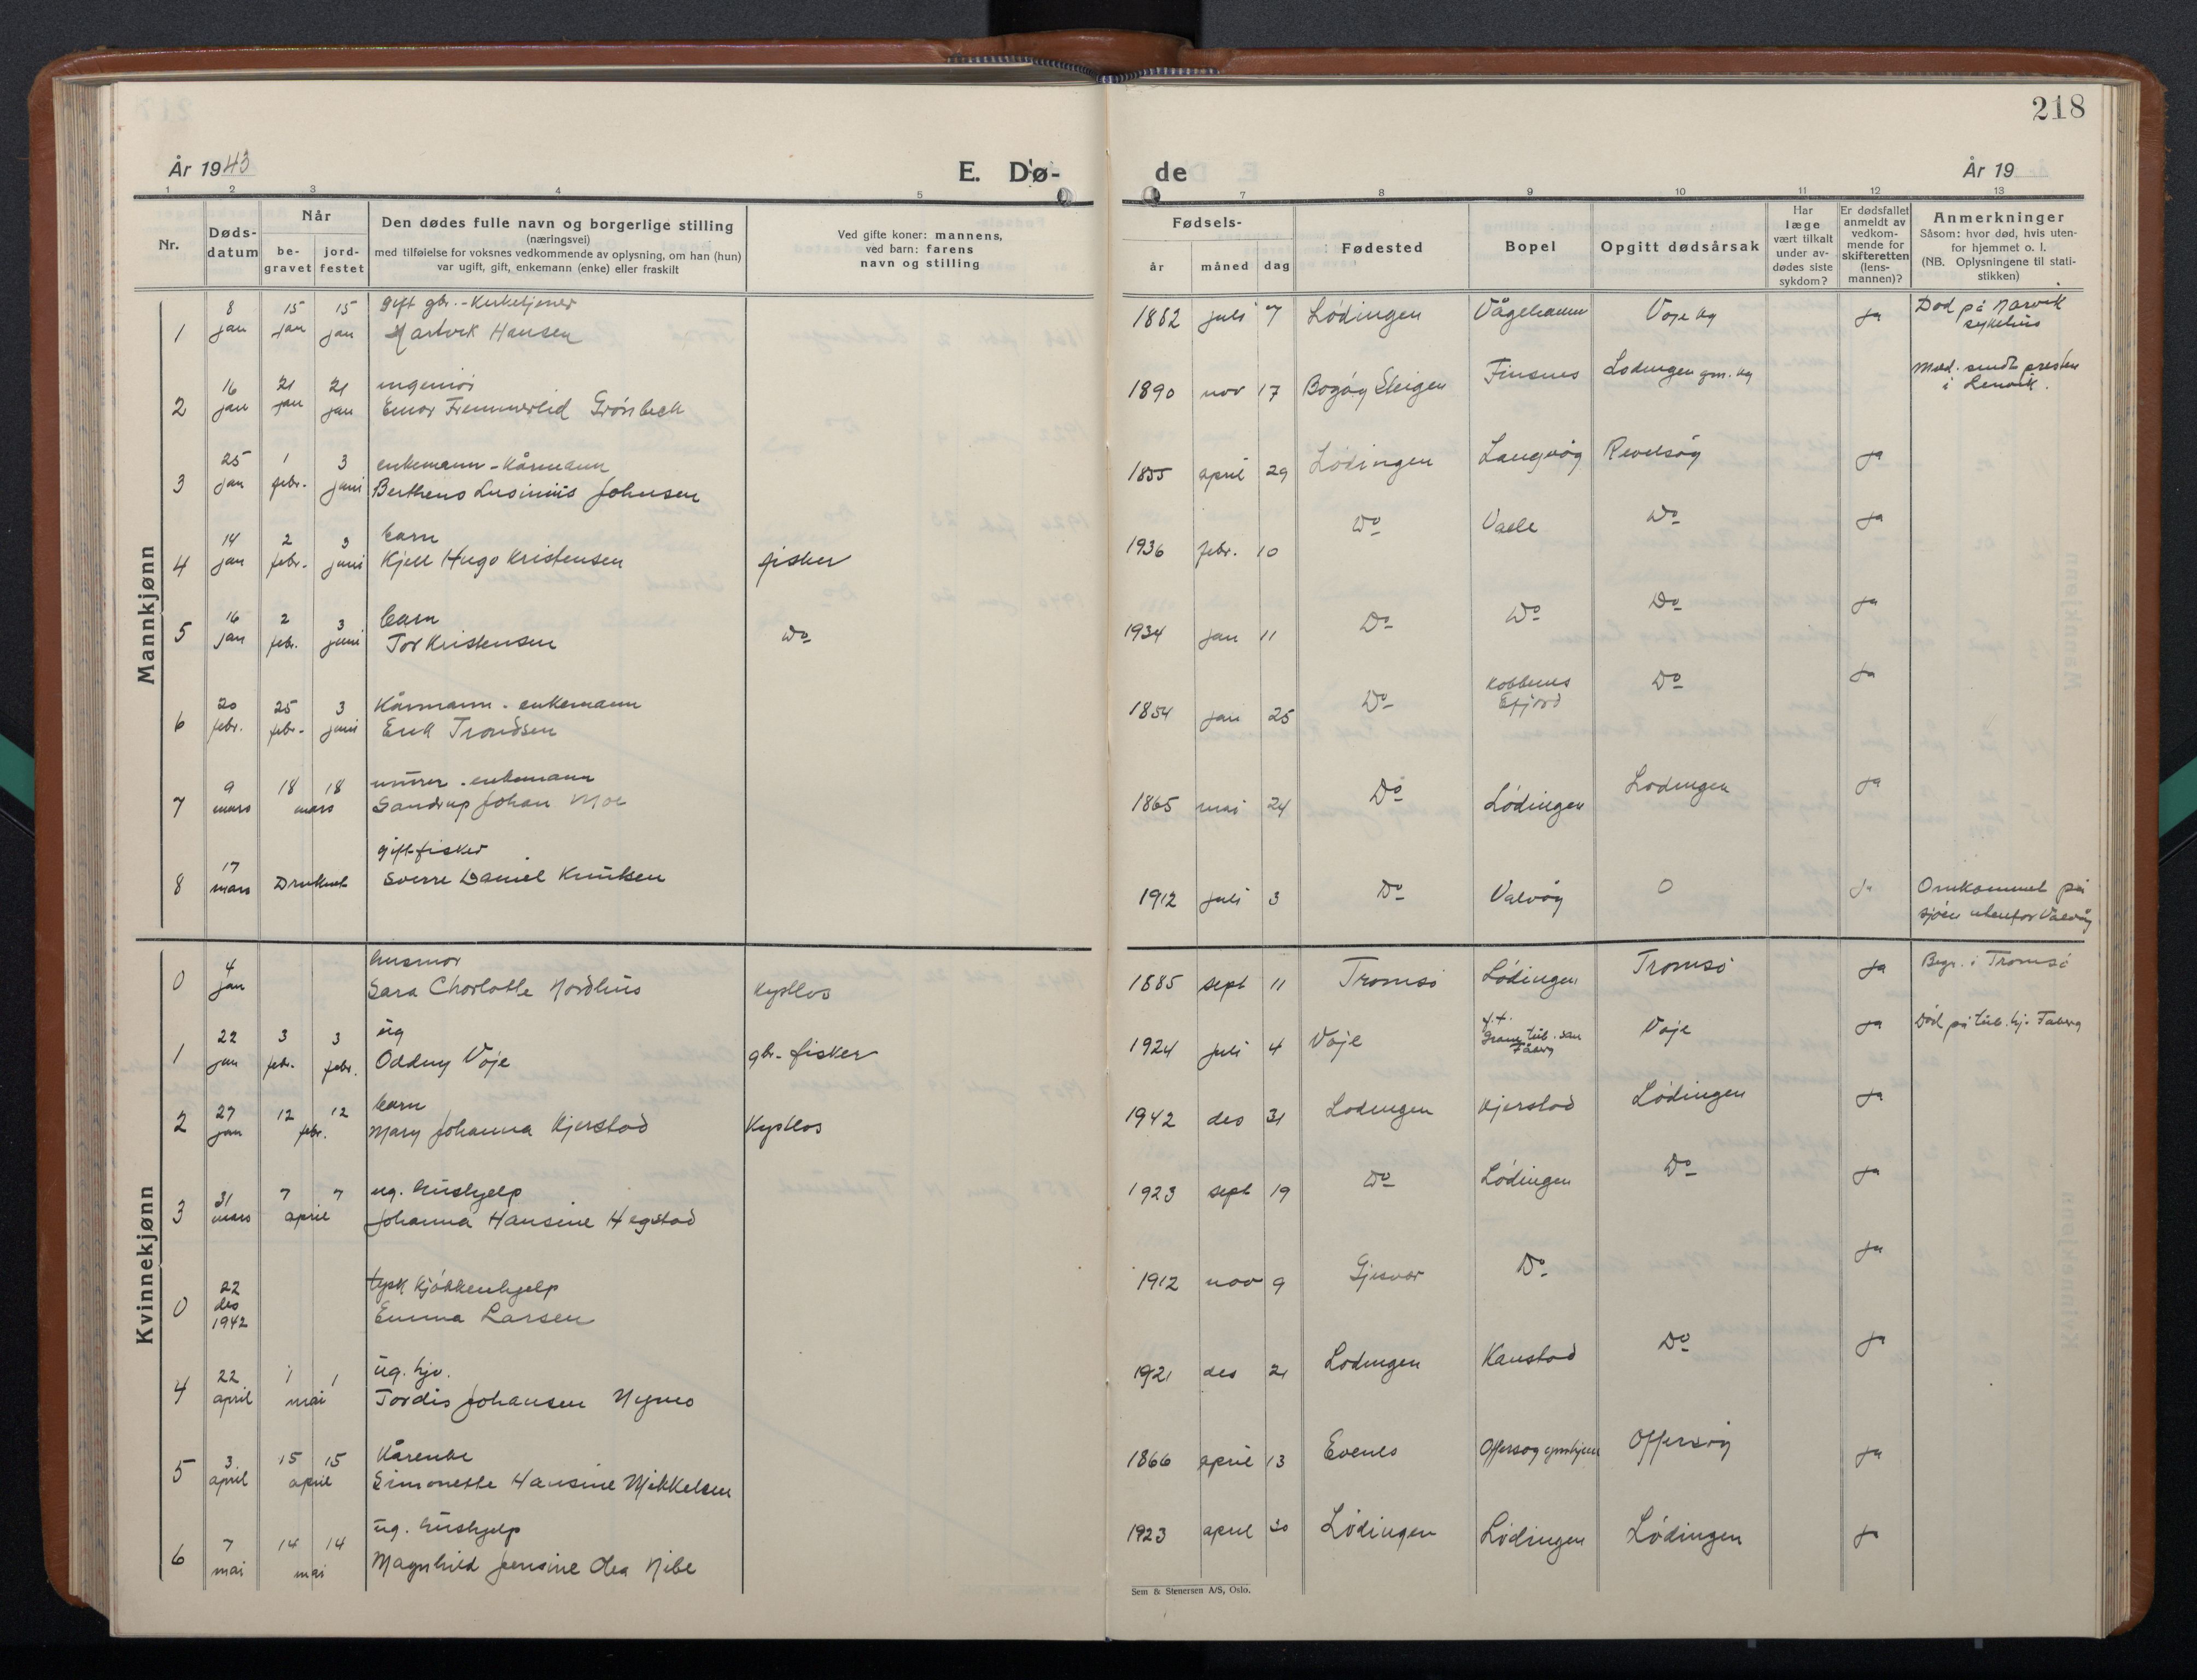 218
År 1943
E. Dø-
de
År 19
1 2 3 4 5
7 8 9 10 11 12 13
Nr.
Døds-
datum
Når
be-
gravet
jord-
festet
Den dødes fulle navn og borgerlige stilling
(næringsvei)
med tilføielse for voksnes vedkommende av oplysning, om han (hun)
var ugift, gift, enkemann (enke) eller fraskilt
Ved gifte koner: mannens,
ved barn: farens
navn og stilling
Fødsels-
år måned dag
Fødested
Bopel
Opgitt dødsårsak
Har
læge
vært tilkalt
under av-
dødes siste
sykdom?
Er dødsfallet
anmeldt av
vedkom-
mende for
skifteretten
(lens-
mannen)?
Anmerkninger
Såsom: hvor død, hvis uten-
for hjemmet o. l.
(NB. Oplysningene til stati-
stikken)
Mannkjønn
8 15 15 gift gbr. - Kirketjener
1 jan jan jan Hartvik Hansen
1862 juli 7 Lødingen Vågehamn Voje kg ja Død på Narvik
sykehus
16 21 21 ingeniør
2 jan jan jan Einar Fremmerlid Grønbech
1890 nov 17 Bogøy Steigen Finsnes Lødingen gm. kg Med. sendt presten
i Lenvik.
25 1 3 enkemann - Kårmann
3 jan febr. juni Berthens Lusinius Johnsen
1855 april 29 Lødingen Langvåg Revelsøy ja
14 2 3 barn
4 jan febr. juni Kjell Hugo Kristensen fisker
1936 febr. 10 Do Do ja
16 2 3 barn
5 jan febr. juni Tor Kristensen Do
1934 jan 11 Do Do Do ja
20 25 3 Kårmann - enkemann
6 febr. febr. juni Erik Trondsen
1854 jan 25 Do Kobbenes
Efjord Do ja
9 18 18 murer - enkemann
7 mars mars Sandrup Johan Moe
1865 mai 24 Do Lødingen Lødingen ja
17 gift fisker
8 mars Druknet Sverre Daniel Knutsen
1912 juli 3 Do Valvåg O Ja Omkommet på
sjøen utenfor Valvåg
Kvinnekjønn
4 husmor
0 jan Sara Charlotte Nordhus Kystlos
1885 sept 11 Tromsø Lødingen Tromsø ja Begr. i Tromsø
22 3 3 ug
1 jan febr. febr. Oddny Voje gbr. - fisker
1924 juli 4 Voje f.t.
Grane tub. san
Fåberg Voje ja Død på tub. hj. Faberg
27 12 12 barn
2 jan febr. Mary Johanna Kjerstad Kystlos
1942 des 31 Lødingen Kjerstad Lødingen ja
31 7 7 ug. hushjelp
3 mars april Johanna Hansine Hegstad
1923 sept 19 Do Lødingen Do ja
22 tysk kjøkkenhjelp
0 des
1942 Emma Larsen
1912 nov 9 Gjesvær Do ja
22 1 1 ug. hjv.
4 april mai Tordis Johansen Nymo
1921 des 21 Lødingen Kanstad Do ja
3 15 15 Kårenke
5 april april Simonette Hansine Mikkelsen
1866 april 13 Evenes Offersøy Offersøy ja
7 14 14 ug. hushjelp
6 mai mai Magnhild Jensine Olea Nibe
1923 april 30 Lødingen Lødingen Lødingen ja
Sem & Stenersen A/S, Oslo.